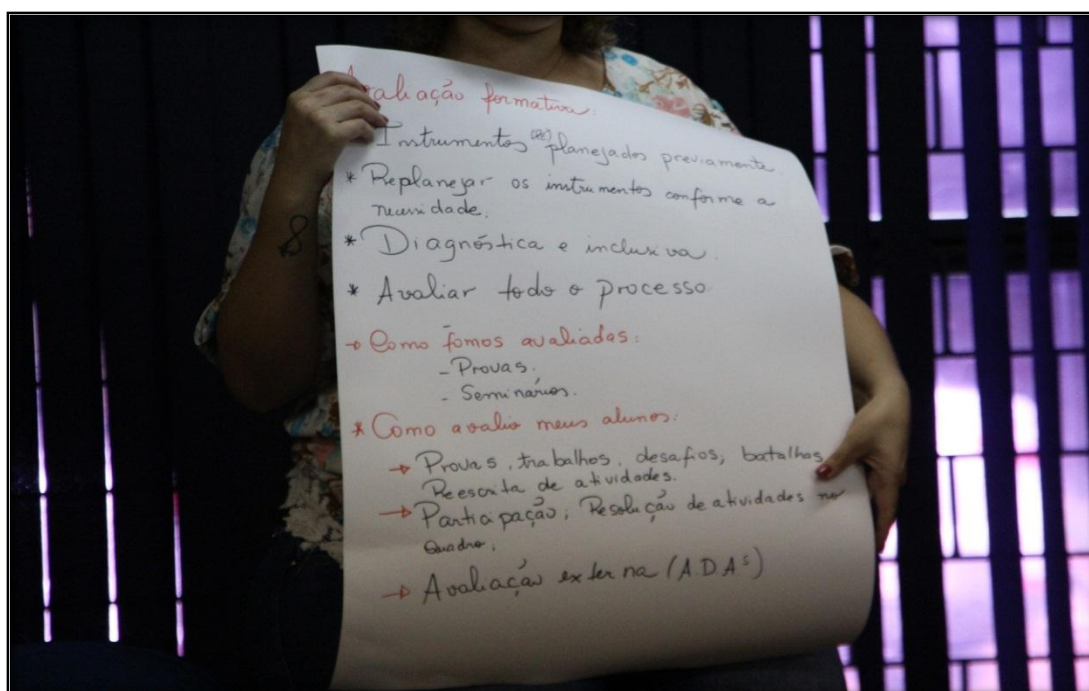 Avaliação formativa:
Instrumentos planejados previamente
* Replanejar os instrumentos conforme a
necessidade.
* Diagnóstica e inclusiva.
* Avaliar todo o processo.
→ Como fomos avaliadas:
- Provas.
- Seminários.
* Como avalio meus alunos:
→ Provas, trabalhos, desafios, batalhas
Reescrita de atividades.
→ Participação; Resolução de atividades no
Quadro;
→ Avaliação externa (A.D.A s)